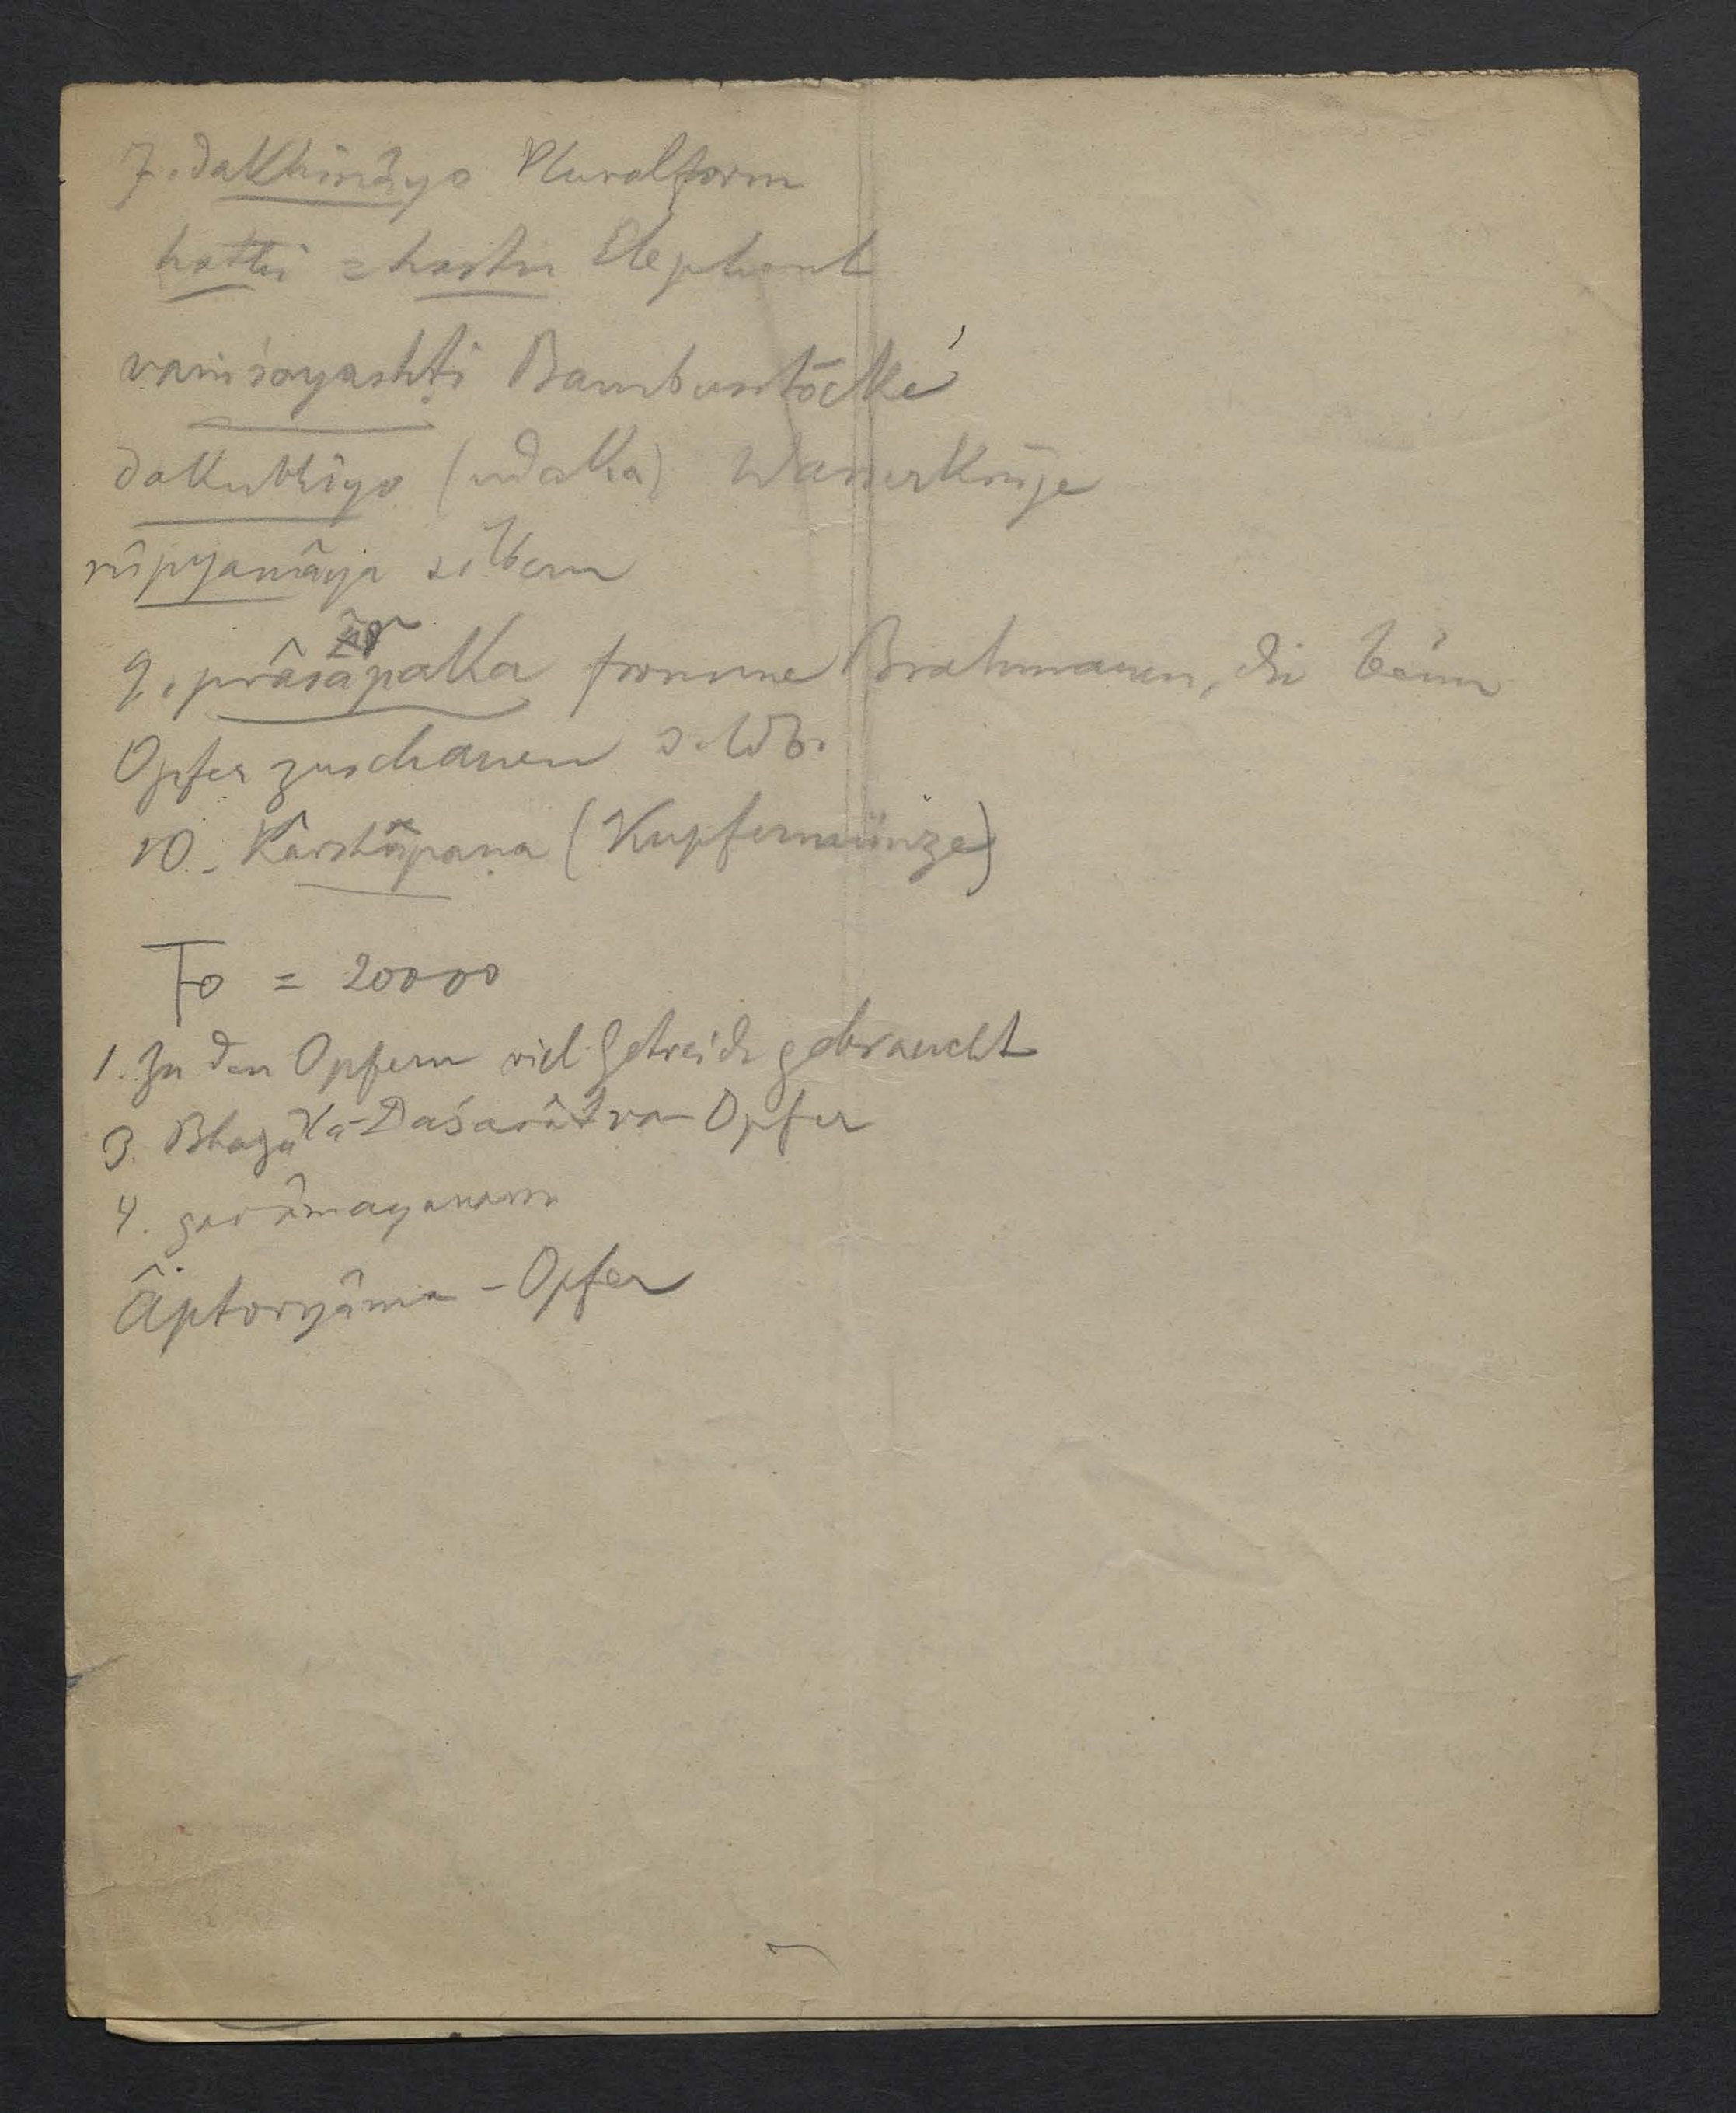 7. dakhinâyo Pluralform
hatthi = hastin Elephant
vaṁśayashṭi Bambusstöcke
dakubhîyo (udaka) Wasserkrüge
rûpyamâya silbern
9. prâsarpaka fromme Brahmanen, die beim
Opfer zuschauen
10. Kârshâpaṇa (Kupfermünze)
= 20000
1. Zu den Opfern viel Getreide gebraucht
3. Daśarâtra-Opfer
4. gavâmayanam
Âptoryâma-Opfer